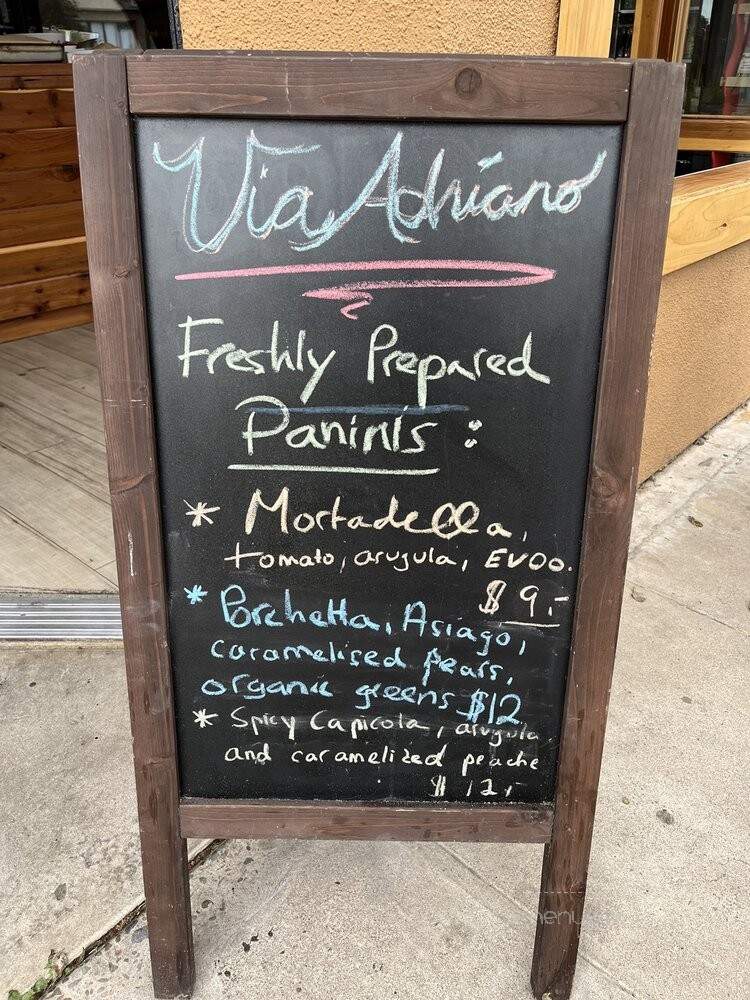 Via Adriano
Freshly Prepared
Paninis :
* Mortadella,
tomato, arugula, EVOO.
$ 9,-
* Porchetta, Asiago,
caramelised pears,
organic greens $12
* Spicy Capicola, arugula
and caramelized peache
$ 12,-
menu